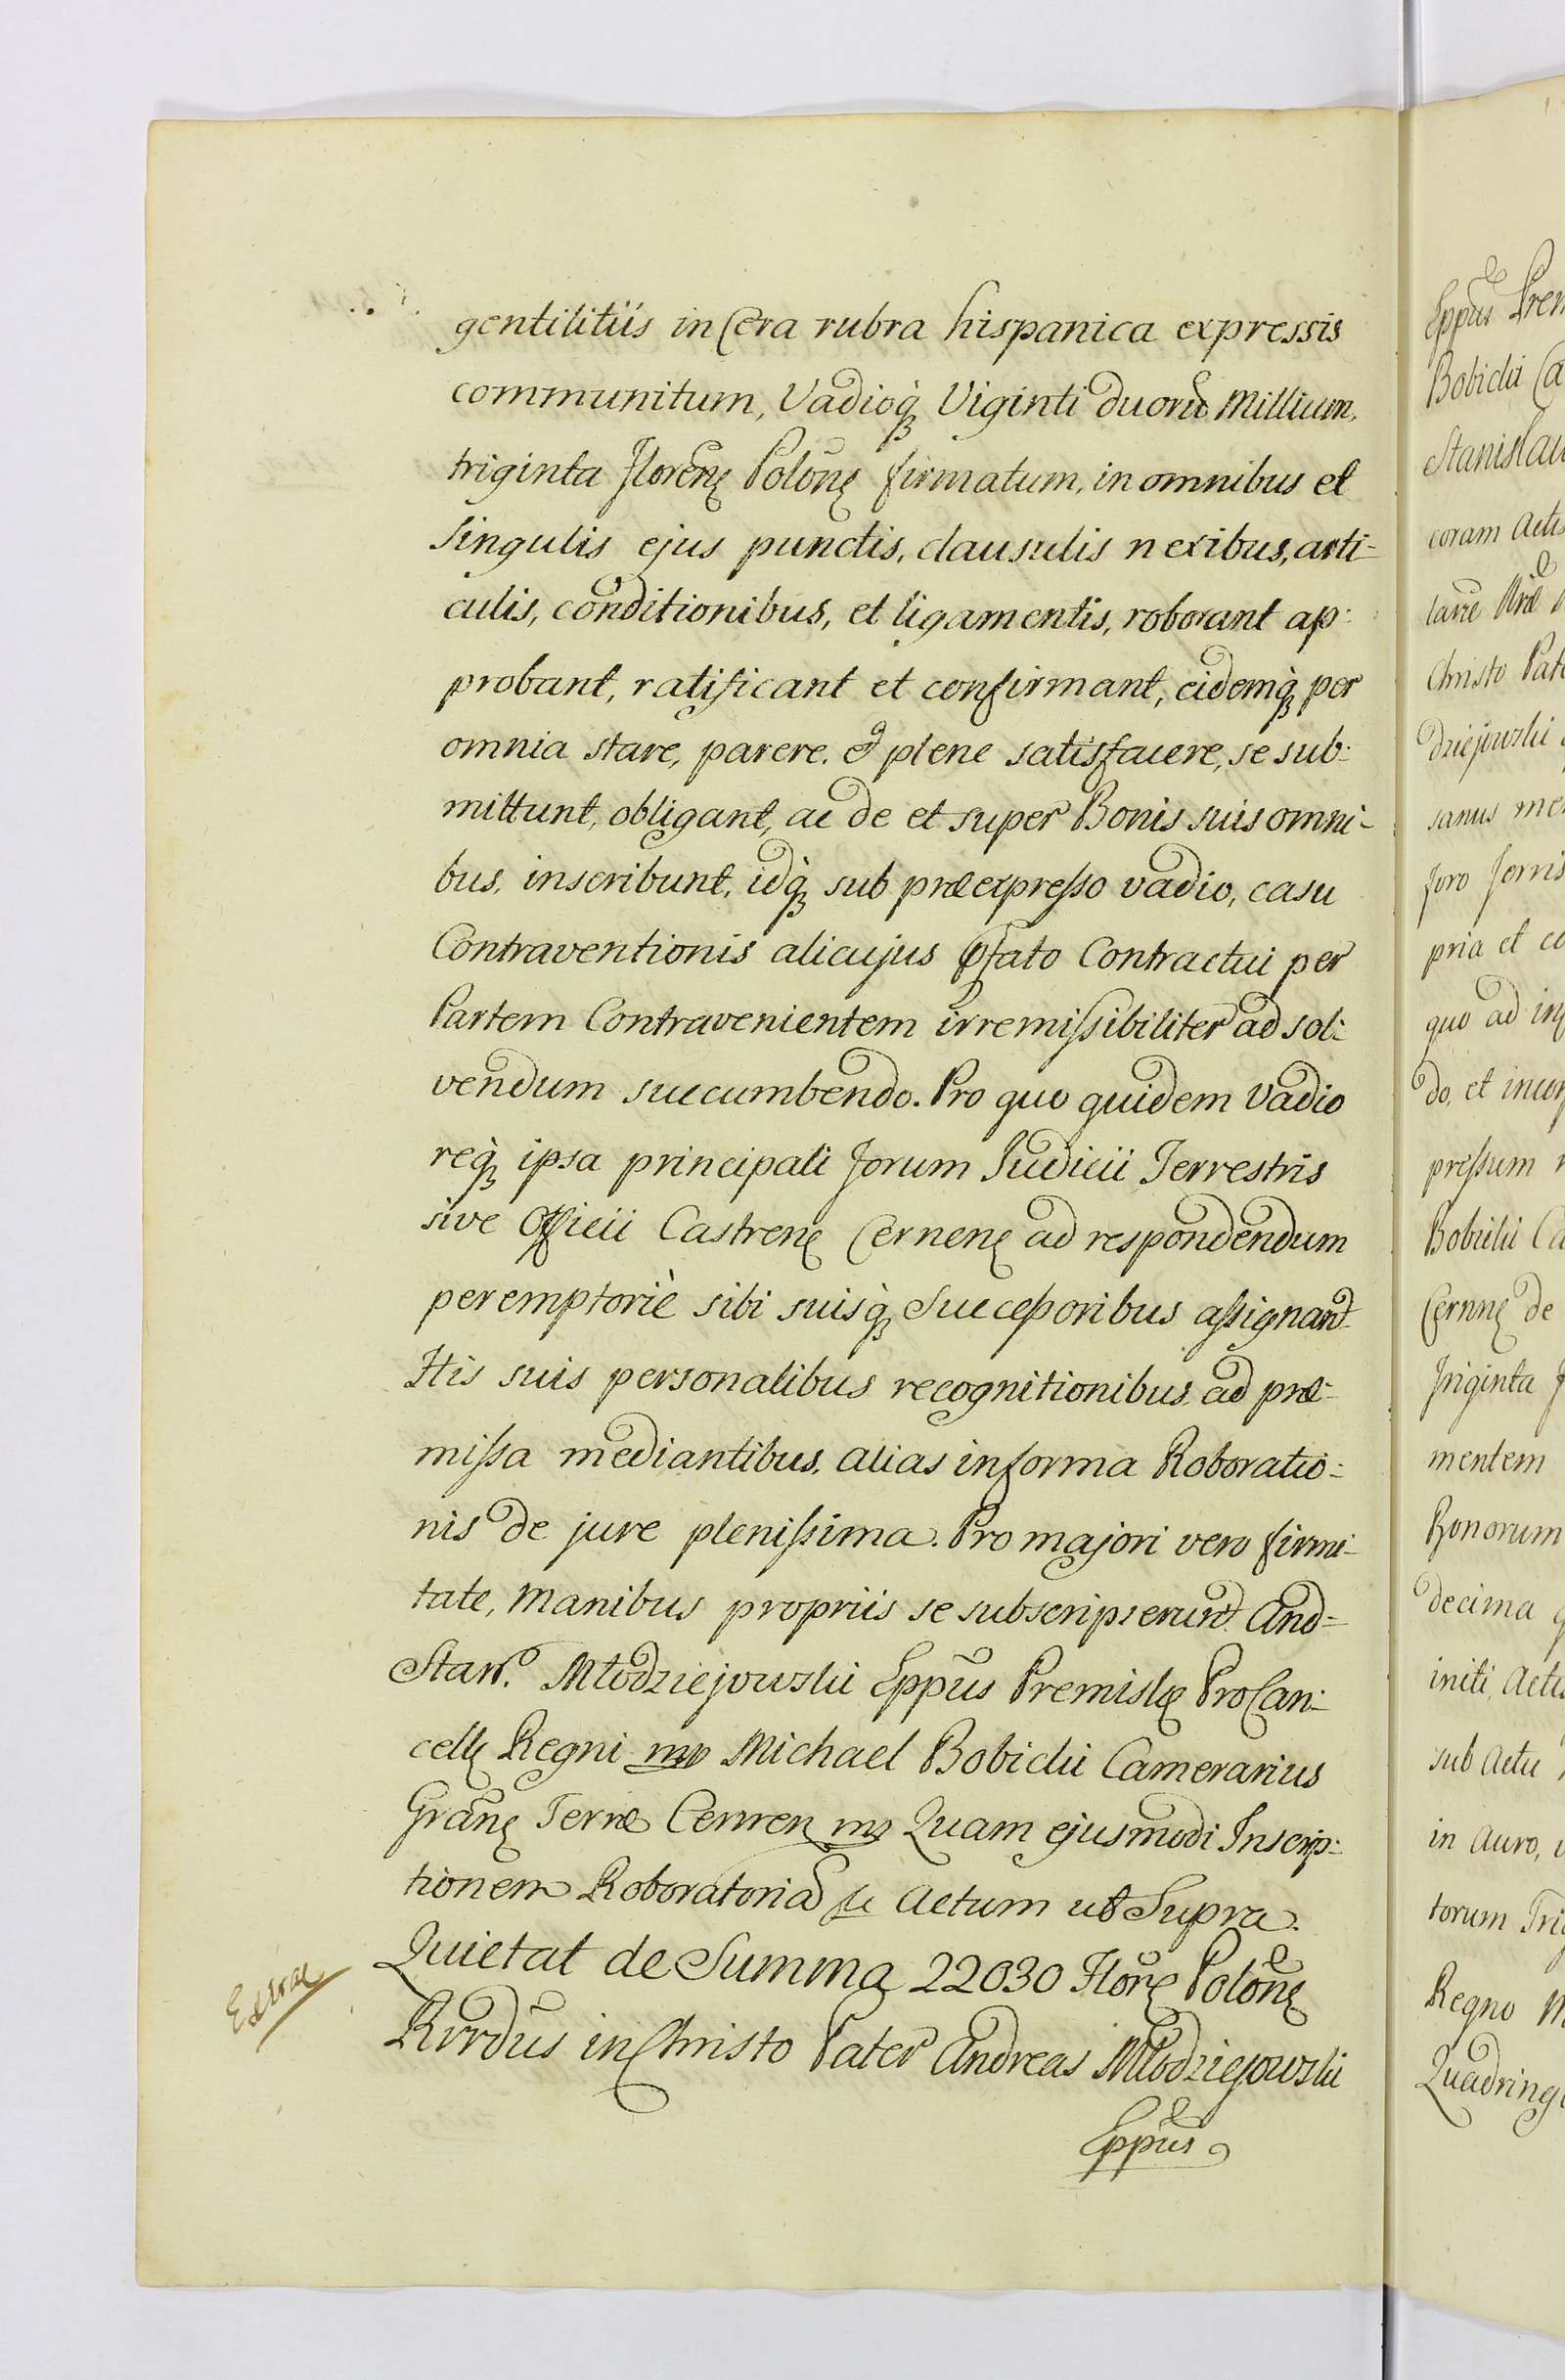 gentilitiis in Cera rubra hispanica expressis
communitum, Vadioq; Viginti duorū Millium,
triginta Floren̄ Polon̄ firmatum, in omnibus et
singulis ejus punctis, clausulis nexibus, arti-
culis, conditionibus, et ligamentis, roborant ap-
probant, ratificant et confirmant, eidemq; per
omnia stare, parere, & plene satisfacere, se sub-
mittunt, obligant, ac de et super Bonis suis omni-
bus, inscribunt, idq; sub præexpresso vadio, casu
Contraventionis alicujus pfato Contractui per
Partem Contravenientem irremissibiliter ad sol-
vendum succumbendo. Pro quo quidem Vadio
req; ipsa principali forum Judicii Terrestris
sive Officii Castren̄ Cernen̄ ad respondendum
peremptoriè sibi suisq; Successoribus assignant.
His suis personalibus recognitionibus ad præ-
missa mediantibus, alias in forma Roboratio-
nis de jure plenissima. Pro majori vero firmi-
tate, Manibus propriis se subscripserunt. And-
Młodziejowski Eppūs Premisłæ ProCan-
cell Regni mp Michael Bobicki Camerarius
Gran̄ Terræ Cernen mp Quam ejusmodi Inscrip-
tionem Roboratoriā Actum ut Supra.
Quietat de Summa 22030 Flor̄ Polon̄
Rvrdūs in Christo Pater Andreas Młodziejowski
Eppūs
Eppūs Prem
Bobicki Ca
Stanislau
coram Actis
Christo Pate
dziejowski
sanus men
foro
pria et co
quo ad
do, et incor
pressum
Bobicki Ca
Cernn̄ de
Triginta
mentem
Bonorum
decima
initi, Actis
sub Actu
in Auro,
torum Tri
Regno
Quadringe